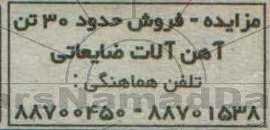 مزایده - فروش حدود ۳۰ تن
آهن آلات ضایعاتی
تلفن هماهنگی :
۸۸۷۰۰۴۵۰ - ۸۸۷۰۱۵۳۸